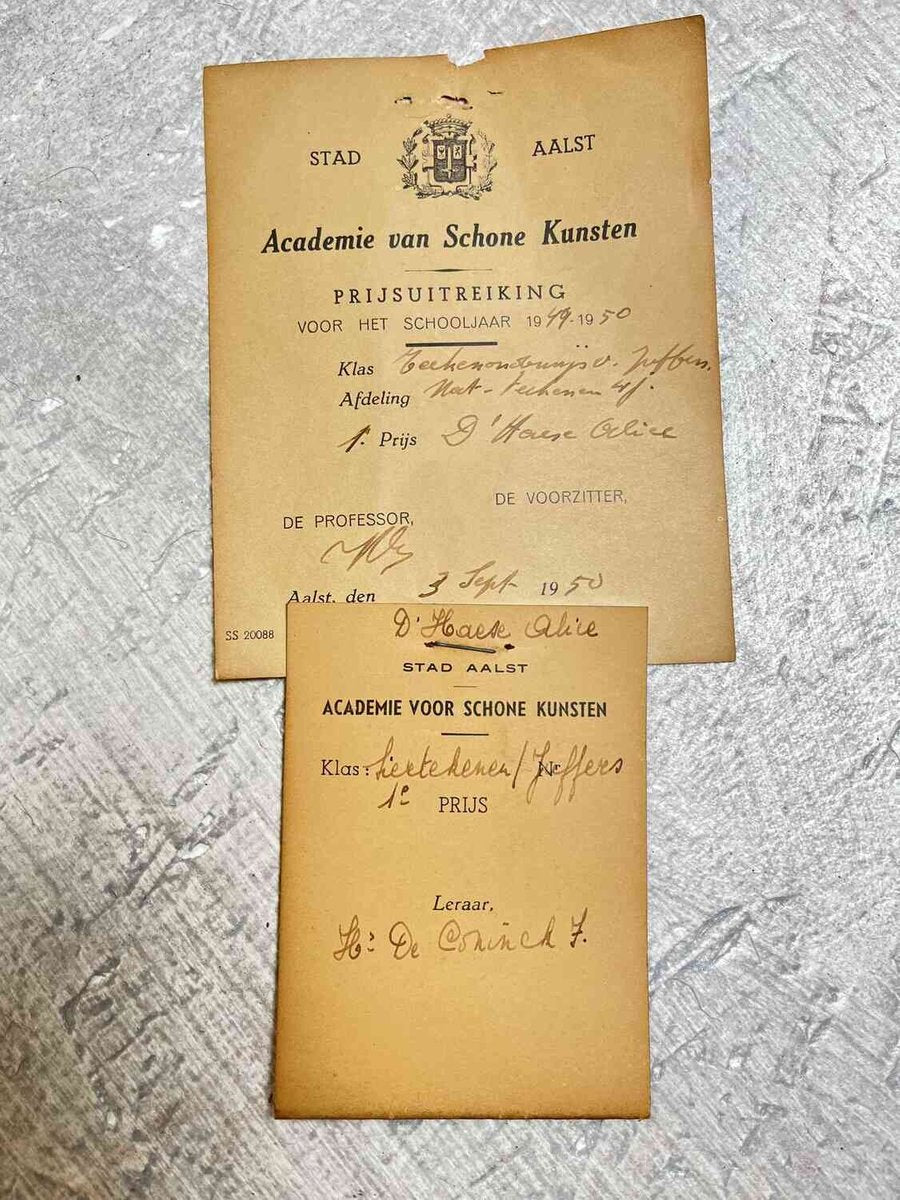 STAD AALST
Academie van Schone Kunsten
PRIJSUITREIKING
VOOR HET SCHOOLJAAR 1949-1950
Klas v. Juffers.
Afdeling Nat-teekenen 4j.
1e Prijs D'Haese Alice
DE VOORZITTER,
DE PROFESSOR,
Aalst, den 3 Sept 1950
SS 20088
D'Haese Alice
STAD AALST
ACADEMIE VOOR SCHONE KUNSTEN
Klas: Siertekenen / Nr Jeffers
1e PRIJS
Leraar,
Hr De Coninck F.